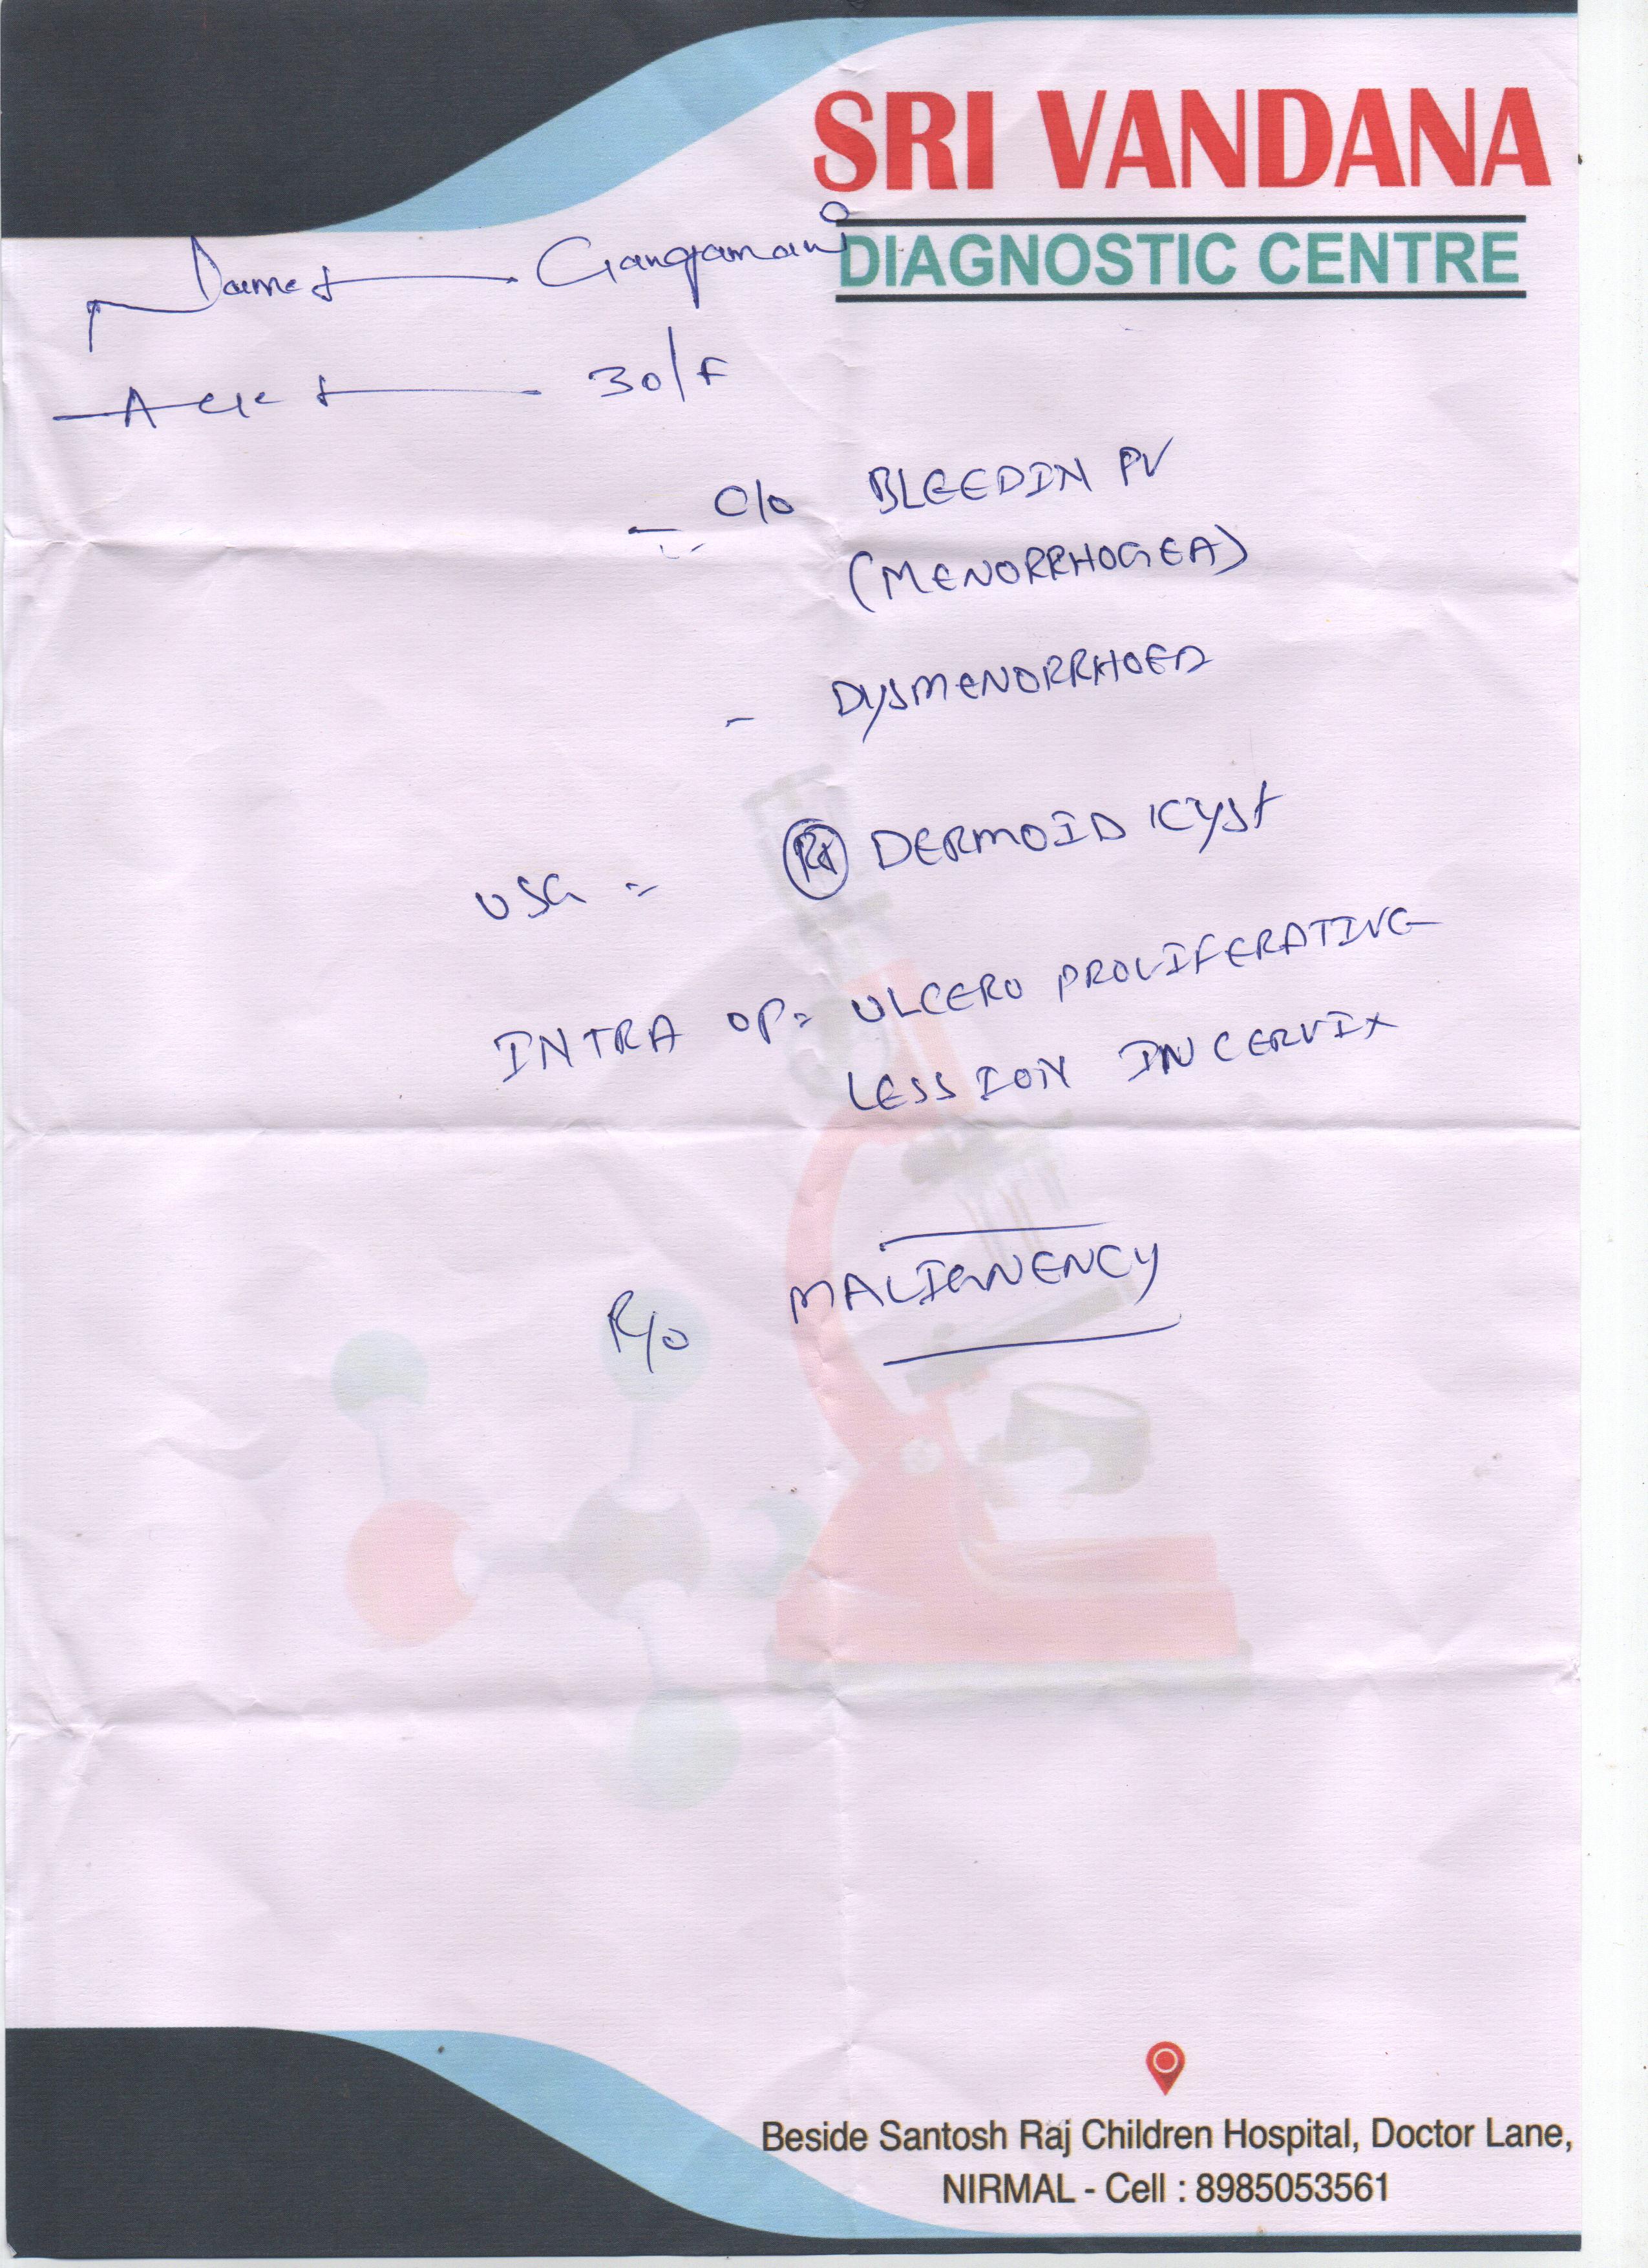 SRI VANDANA
DIAGNOSTIC CENTRE
Name Gangamani
Age 30/F
- C/o BLEEDIN PV
(MENORRHOGEA)
- DYSMENORRHOEA
USG = Rt DERMOID CYST
INTRA OP= ULCERO PROLIFERATING
LESSION IN CERVIX
R/o MALIGNENCY
Beside Santosh Raj Children Hospital, Doctor Lane,
NIRMAL - Cell : 8985053561